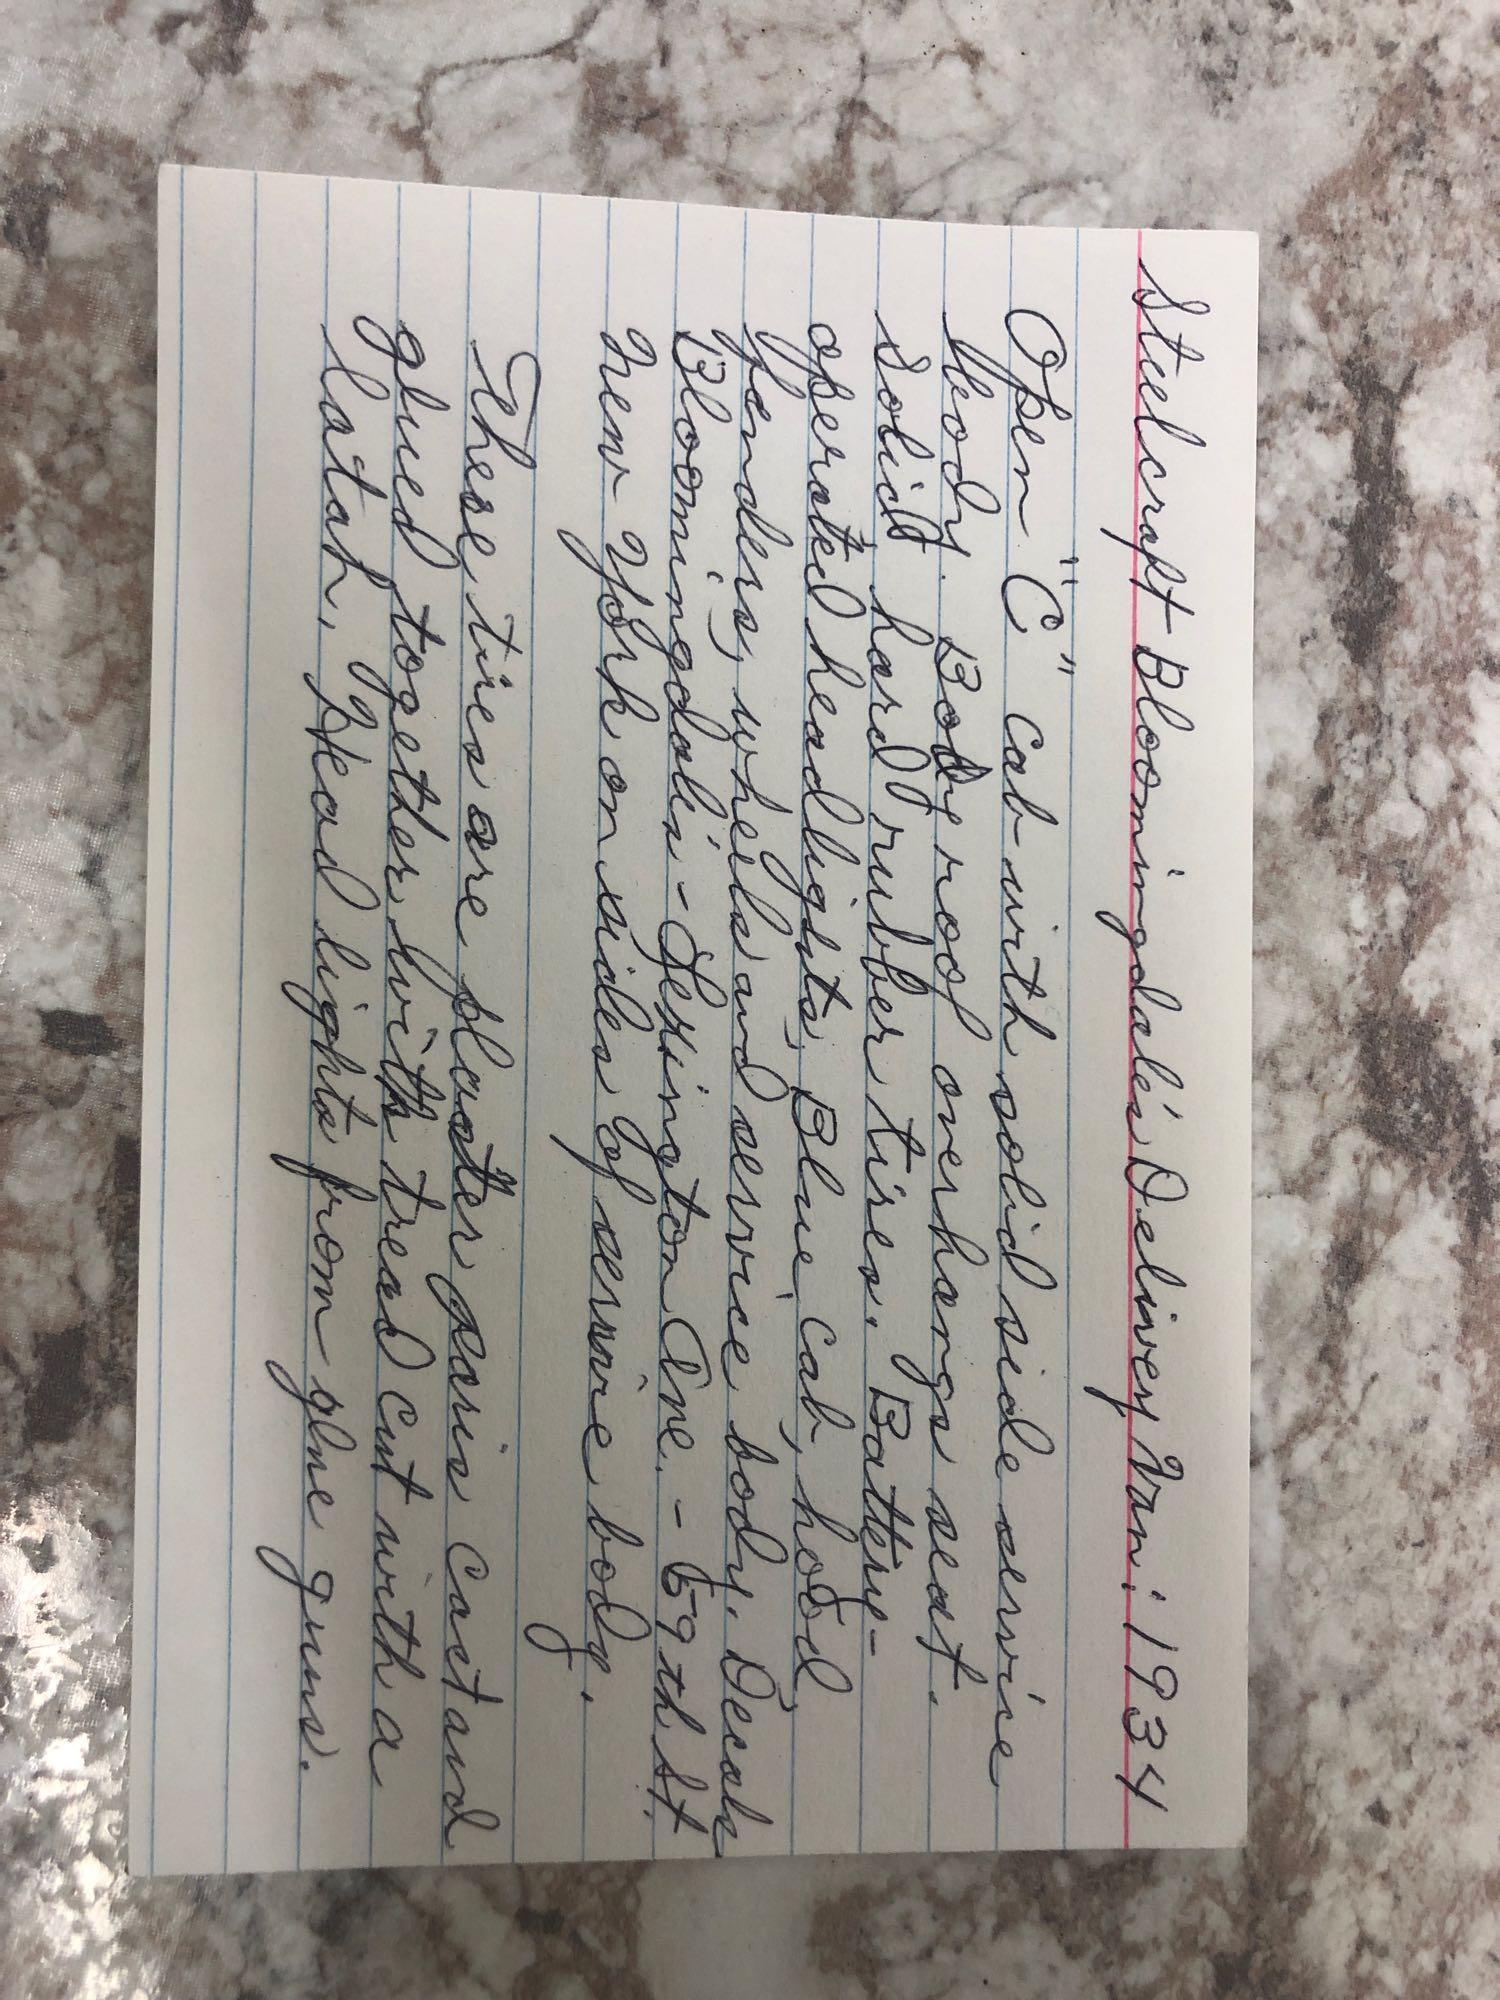 Steelcraft Bloomingdale's Delivery Van: 1934
Open "C" cab with solid side service
body. Body roof overhangs seat.
Solid hard rubber tires. Battery-
operated headlights, Blue cab, hood,
fenders, wheels and service body. Decals
Bloomingdale's - Lexington Ave. - 59th St.
New York on sides of service body.
These tires are plaster paris cast and
glued together with tread cut with a
latah. Head lights from glue guns.